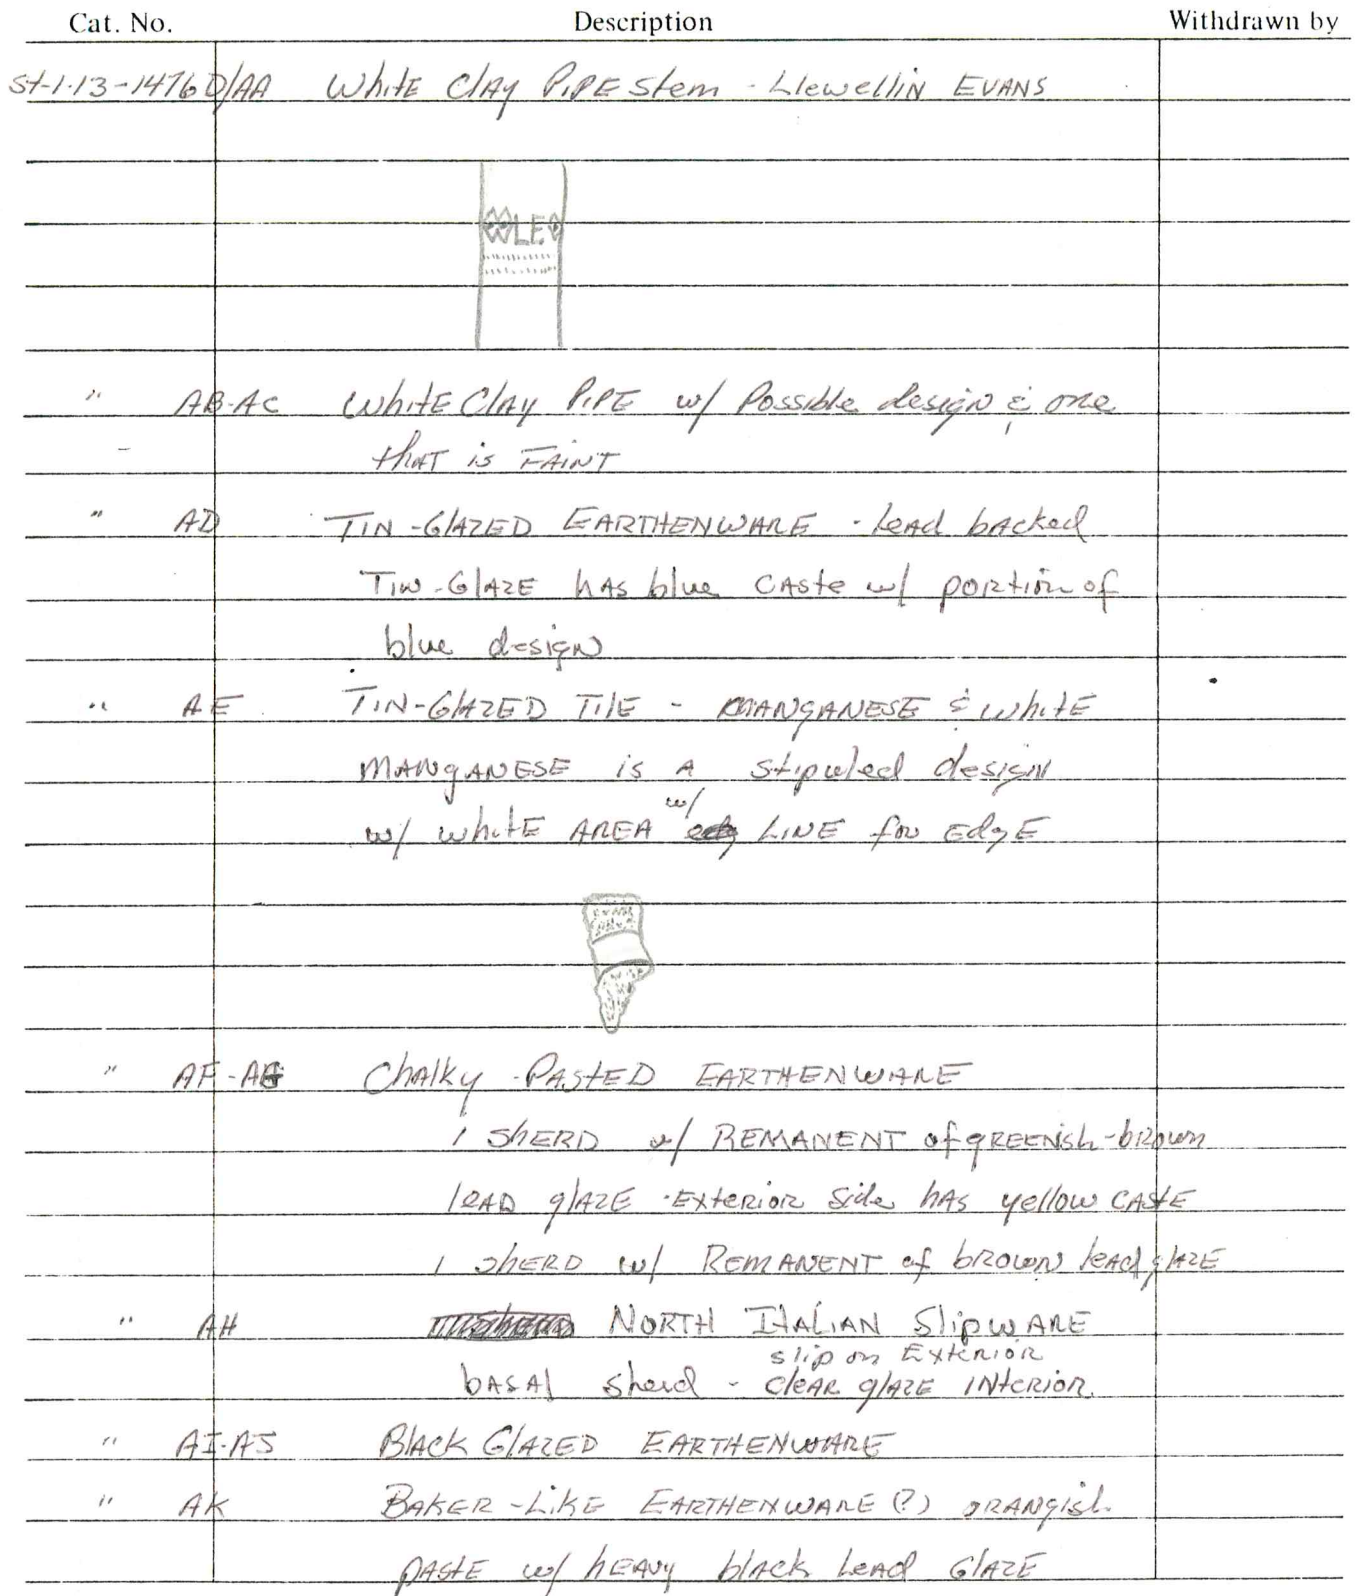 Cat. No. Description Withdrawn by
St-1-13-1476D/AA White Clay Pipe Stem - Llewellin Evans
LE
" AB-AC White Clay Pipe w/ Possible design & one
that is Faint
" AD Tin-Glazed Earthenware - lead backed
Tin-Glaze has blue caste w/ portion of
blue design
" AE Tin-Glazed Tile - Manganese & white
Manganese is a stipuled design
w/ white area w/ Line for Edge
" AF-AG Chalky-Pasted Earthenware
1 sherd w/ Remanent of greenish-brown
lead glaze - Exterior side has yellow caste
1 sherd w/ Remanent of brown lead glaze
" AH North Italian Slipware
slip on Exterior
basal sherd - clear glaze interior
" AI-AJ Black Glazed Earthenware
" AK Baker-Like Earthenware (?) orangish
paste w/ heavy black Lead Glaze